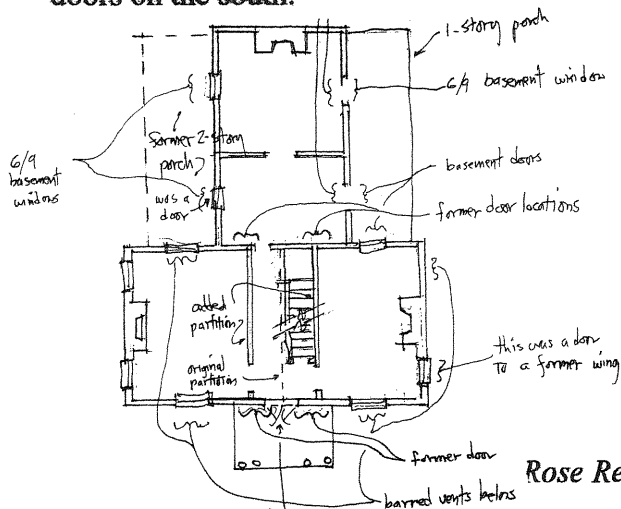 doors on the south.
1-story porch
6/9 basement window
former 2-story
porch
6/9
basement
windows
was a
door
basement doors
former door locations
added
partition
original
partition
this was a door
to a former wing
former door
Rose Re
barred vents below